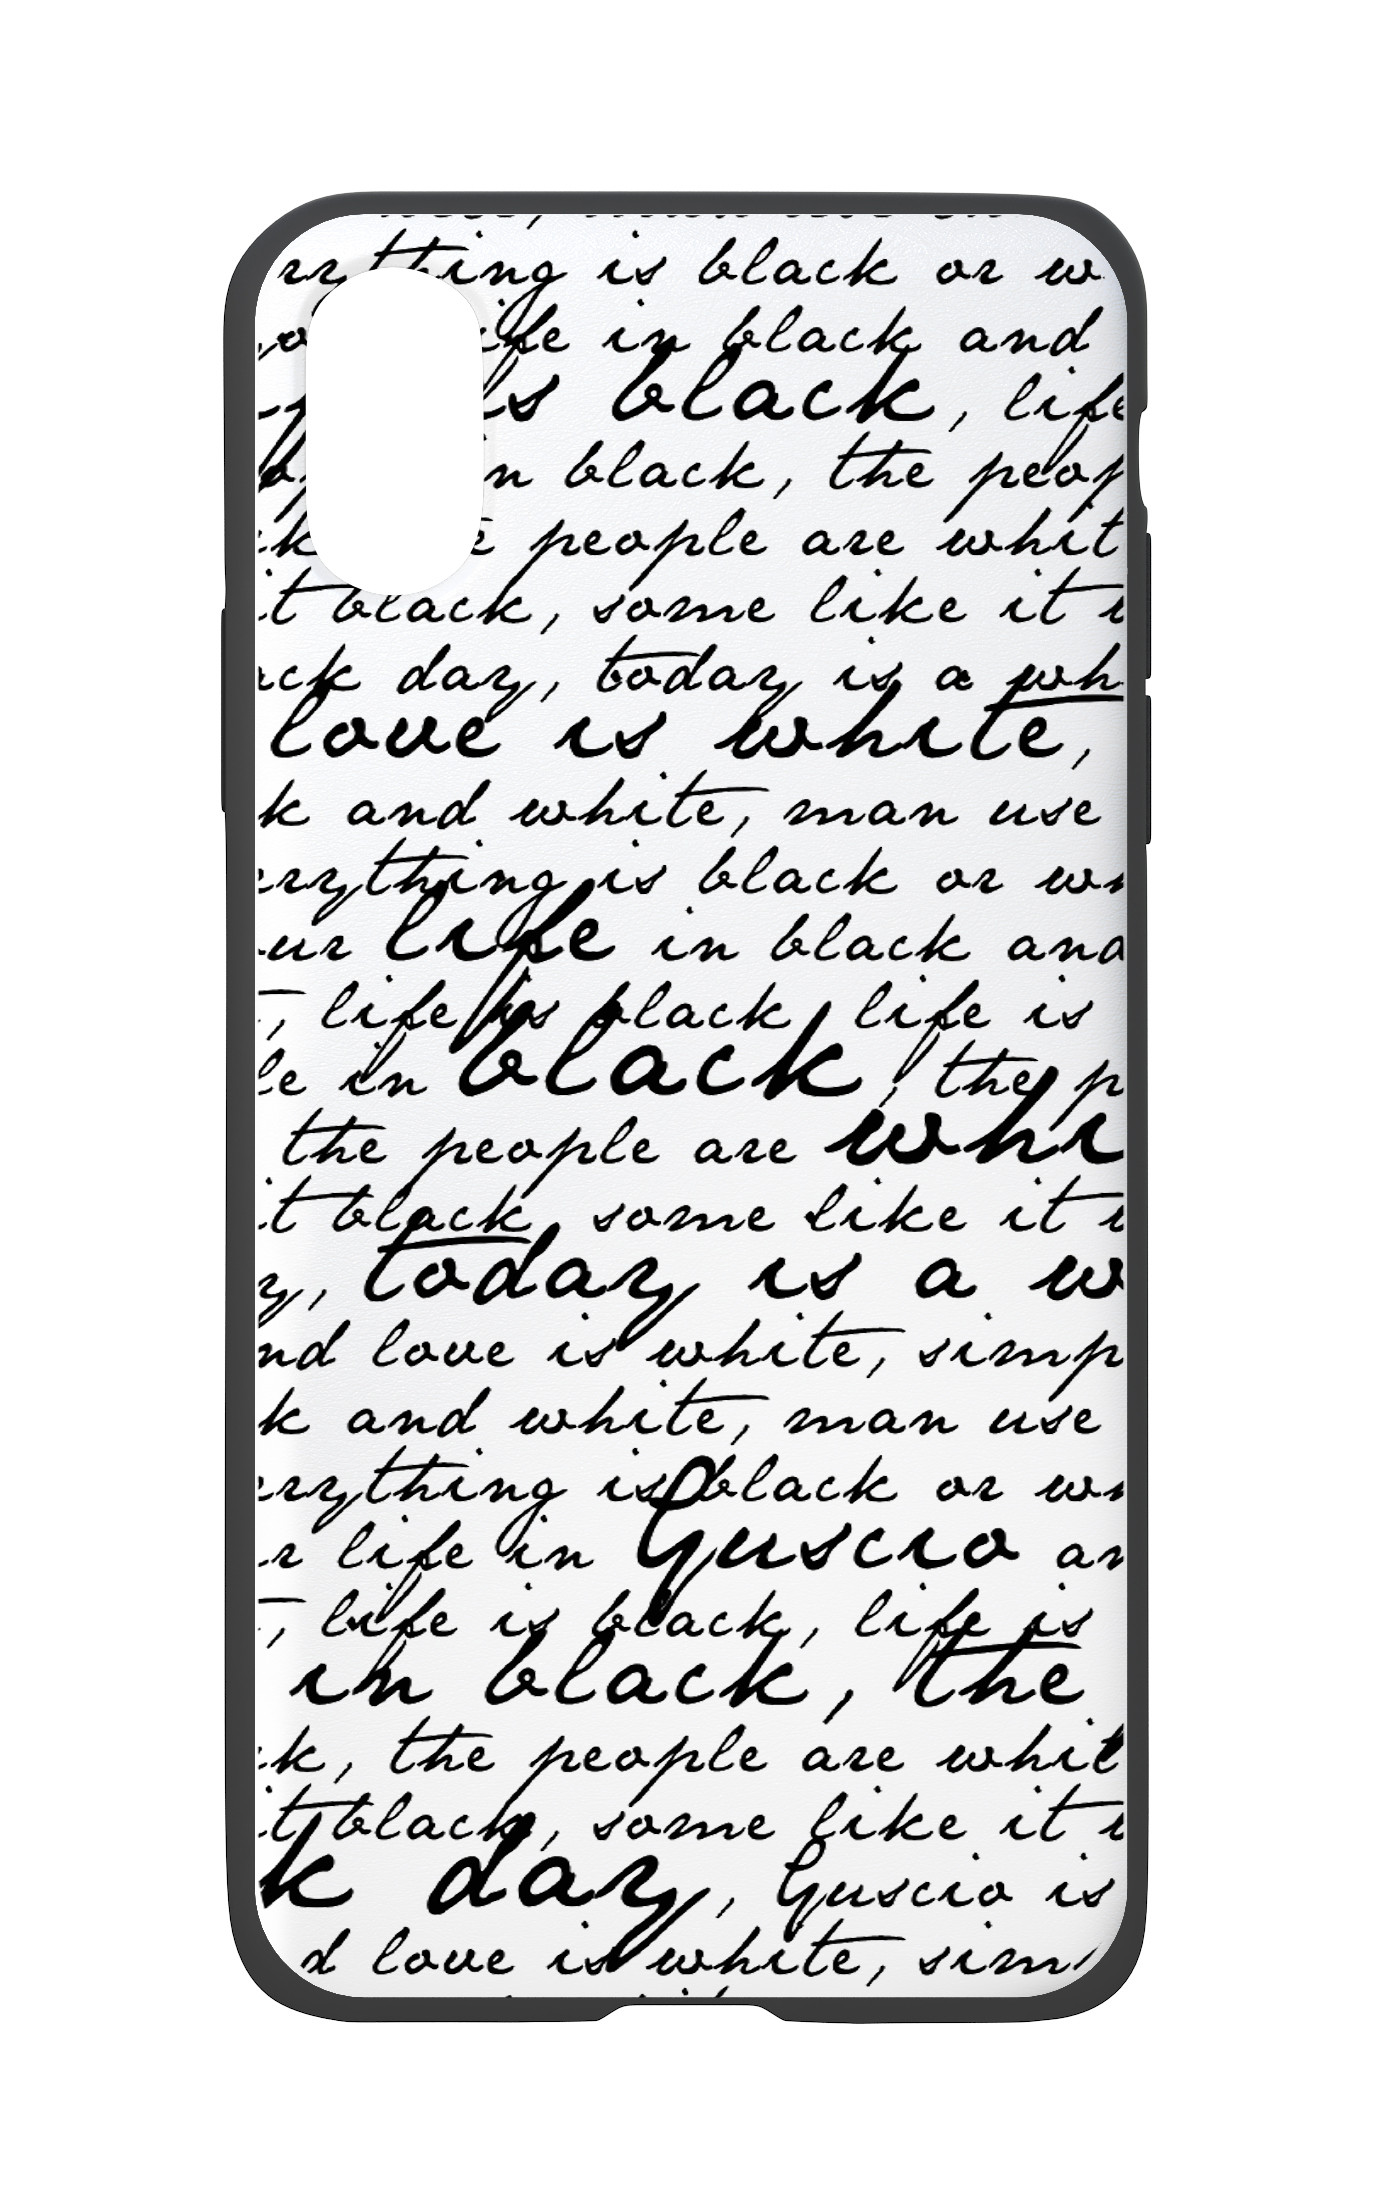 rything is black or w
life in black and
is black, life
in black, the peop
k people are whit
it black, some like it
ack day, today is a wh
love is white,
k and white, man use
erything is black or wh
ur life in black and
, life is black, life is
le in black, the p
the people are whi
it black, some like it
y, today is a w
nd love is white, simp
k and white, man use
erything is black or wh
r life in Guscio an
, life is black, life is
in black, the
k, the people are whit
it black, some like it
k day, Guscio is
d love is white, sim